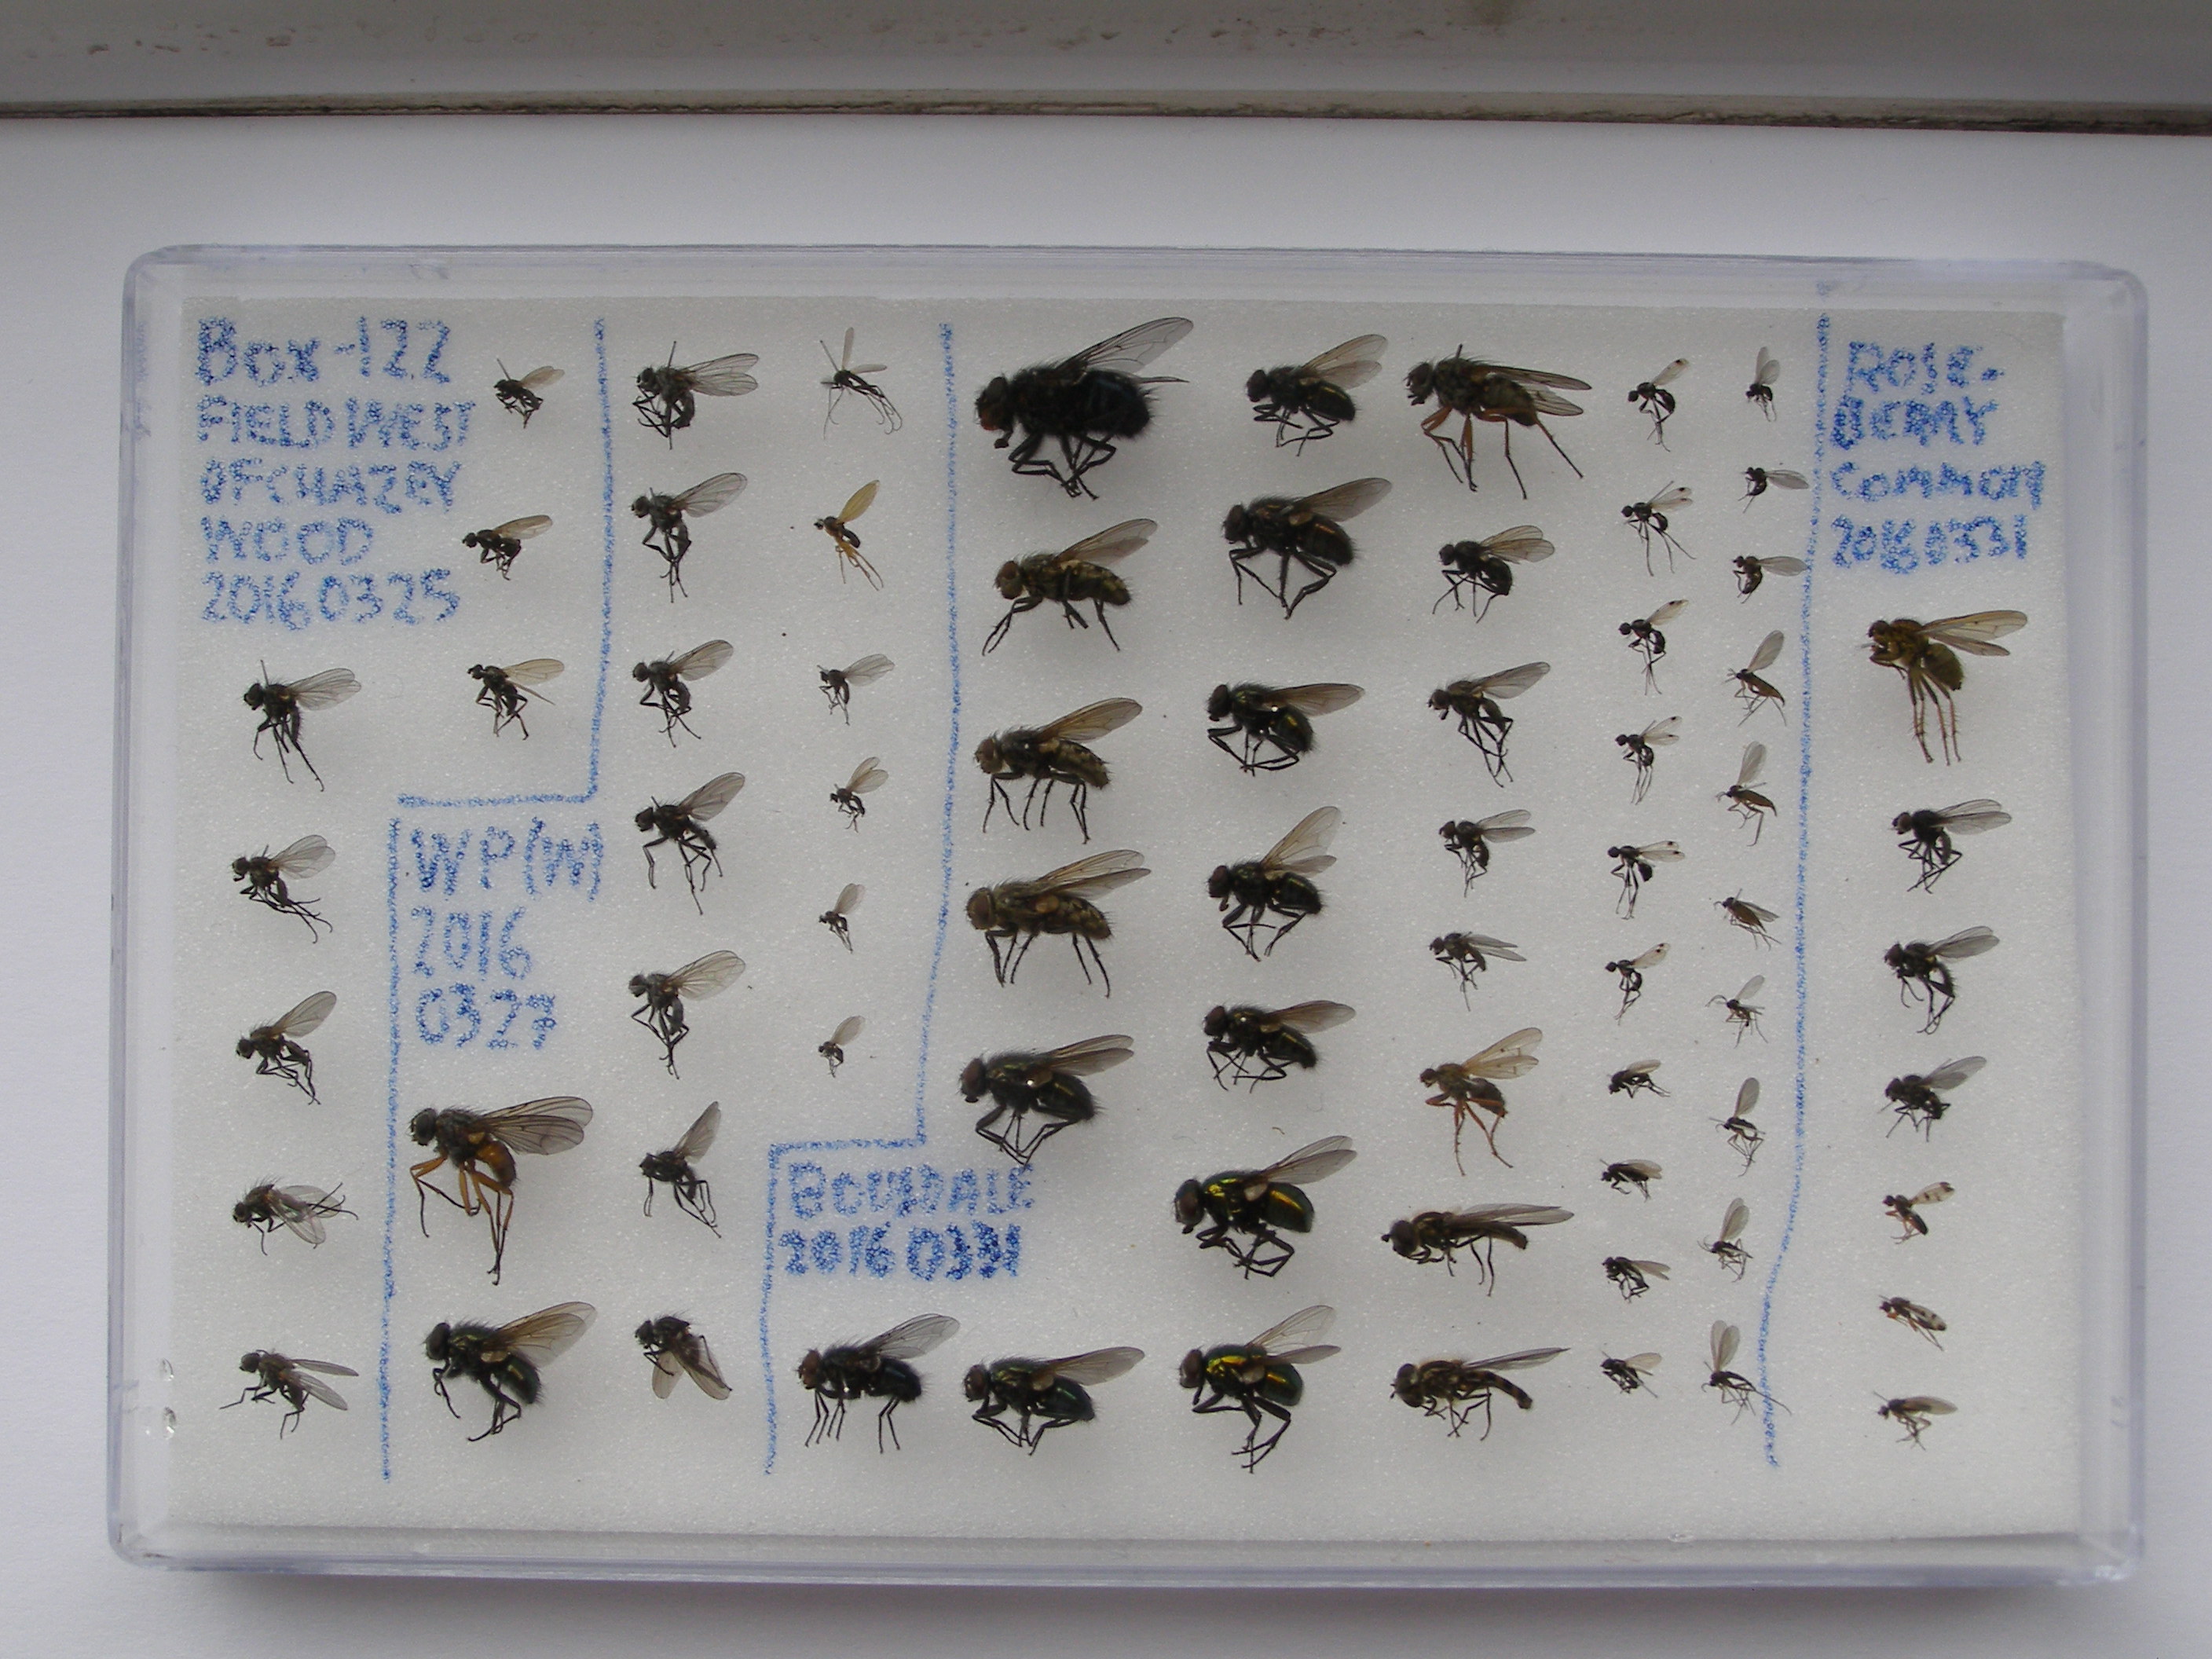 Box-122
FIELD WEST
OF CHAZEY
WOOD
20160325
WP/WJ
2016
0327
20160331
ROSE-
BERRY
COMMON
20160331